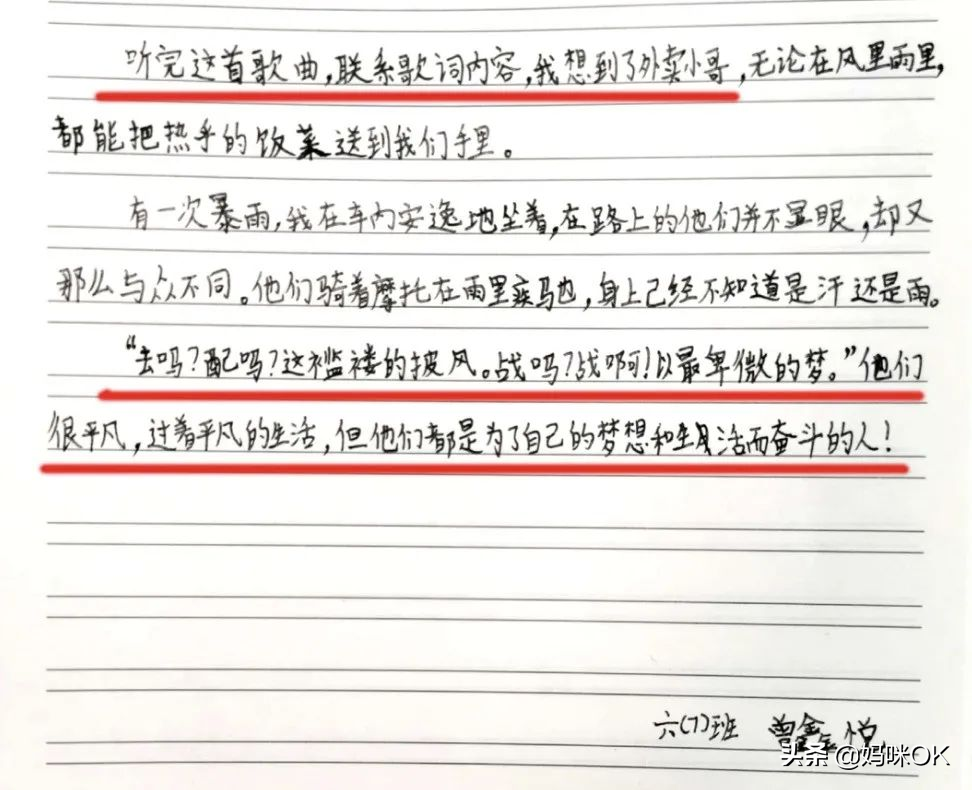 听完这首歌曲,联系歌词内容,我想到了外卖小哥,无论在风里雨里,
都能把热乎的饭菜送到我们手里。
有一次暴雨,我在车内安逸地坐着,在路上的他们并不显眼,却又
那么与众不同。他们骑着摩托在雨里疾驰,身上已经不知道是汗还是雨。
“去吗?配吗?这褴褛的披风。战吗?战啊!以最卑微的梦。”他们
很平凡,过着平凡的生活,但他们都是为了自己的梦想和生活而奋斗的人!
六(7)班 曾鑫悦
头条 @妈咪OK